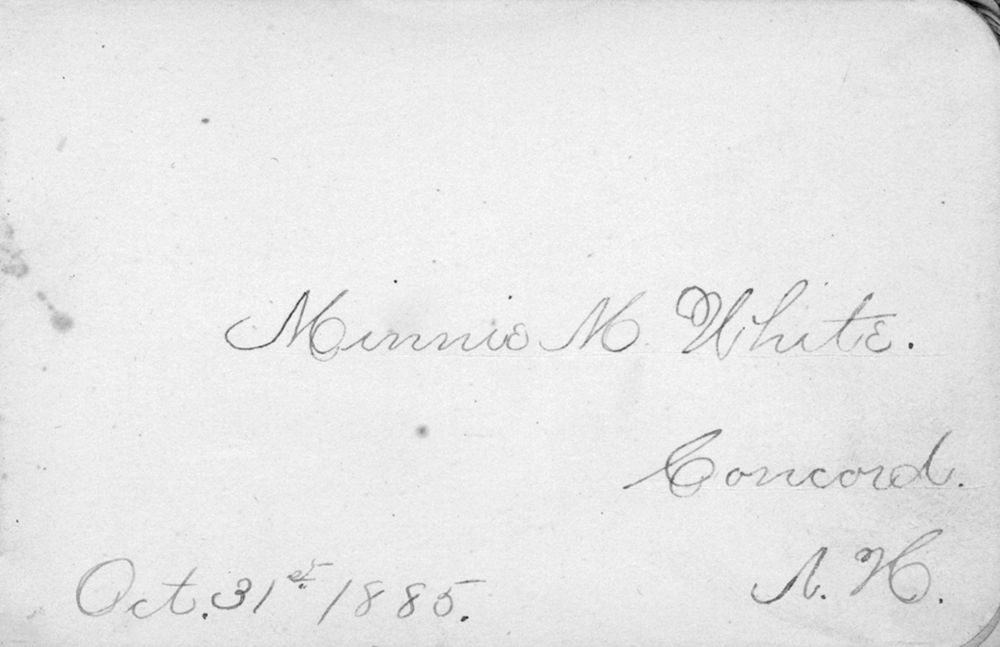 Minnie M White.
Concord.
N. H.
Oct. 31st 1885.